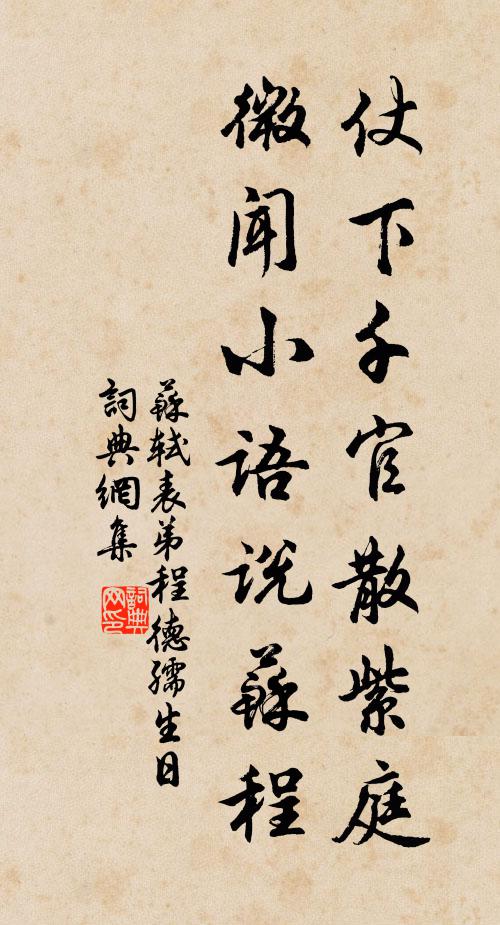 仗下千官散紫庭
微聞小語説蘇程
蘇軾表弟程德孺生日
詞典網集
詞典
网印